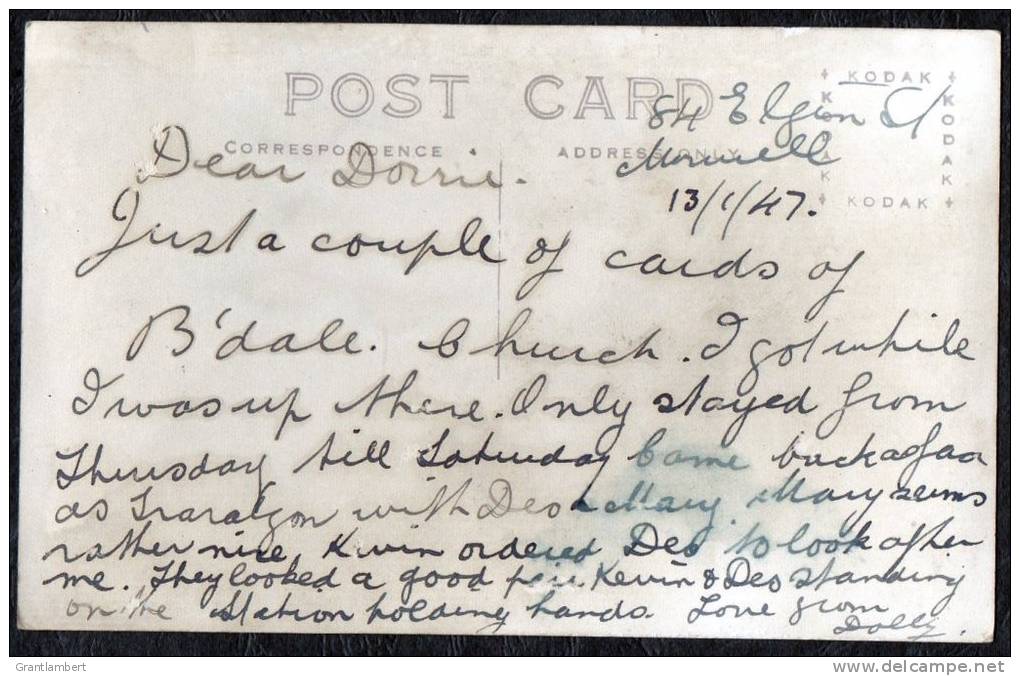 POST CARD
KODAK
KODAK
KODAK
KODAK
CORRESPONDENCE
ADDRESS ONLY
84 Elgin St
Morwell
13/1/47.
Dear Dorrie.
Just a couple of cards of
B'dale. Church. I got while
I was up there. Only stayed from
Thursday till Saturday Came back as far
as Traralgon with Des & Mary. Mary seems
rather nice, Kevin ordered Des to look after
me. They looked a good pair. Kevin & Des standing
on the Station holding hands. Love from
Dolly.
Grantlambert
delcampe.net